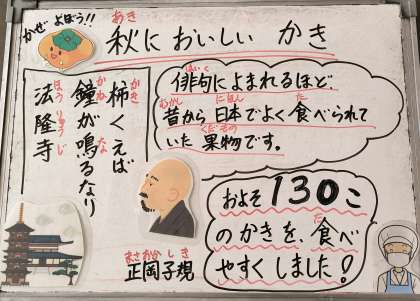 かぜ よぼう!!
秋においしい かき
あき
俳句によまれるほど、
はいく
昔から 日本でよく食べられて
むかし にほん た
いた 果物です。
くだもの
柿くえば
かき
鐘が鳴るなり
かね な
法隆寺
ほうりゅうじ
正岡子規
まさおかしき
およそ130こ
のかきを、食べ
た
やすくしました!